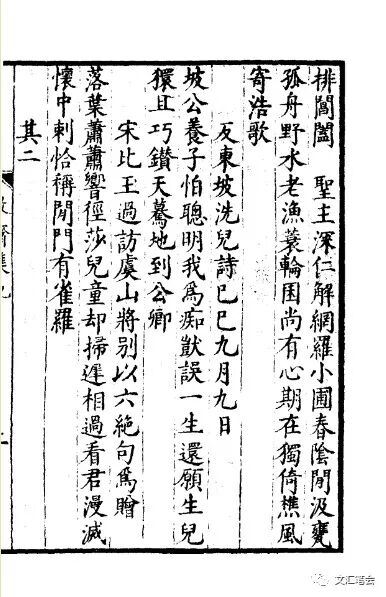 排閶闔　聖主深仁解網羅小圃春陰閒汲甕
孤舟野水老漁蓑輪囷尚有心期在獨倚樵風
寄浩歌
反東坡洗兒詩己巳九月九日
坡公養子怕聰明我爲痴獃誤一生還願生兒
獧且巧鑽天驀地到公卿
宋比玉過訪虞山將別以六絕句爲贈
落葉蕭蕭響徑莎兒童却掃遲相過看君漫滅
懷中刺恰稱閒門有雀羅
其二